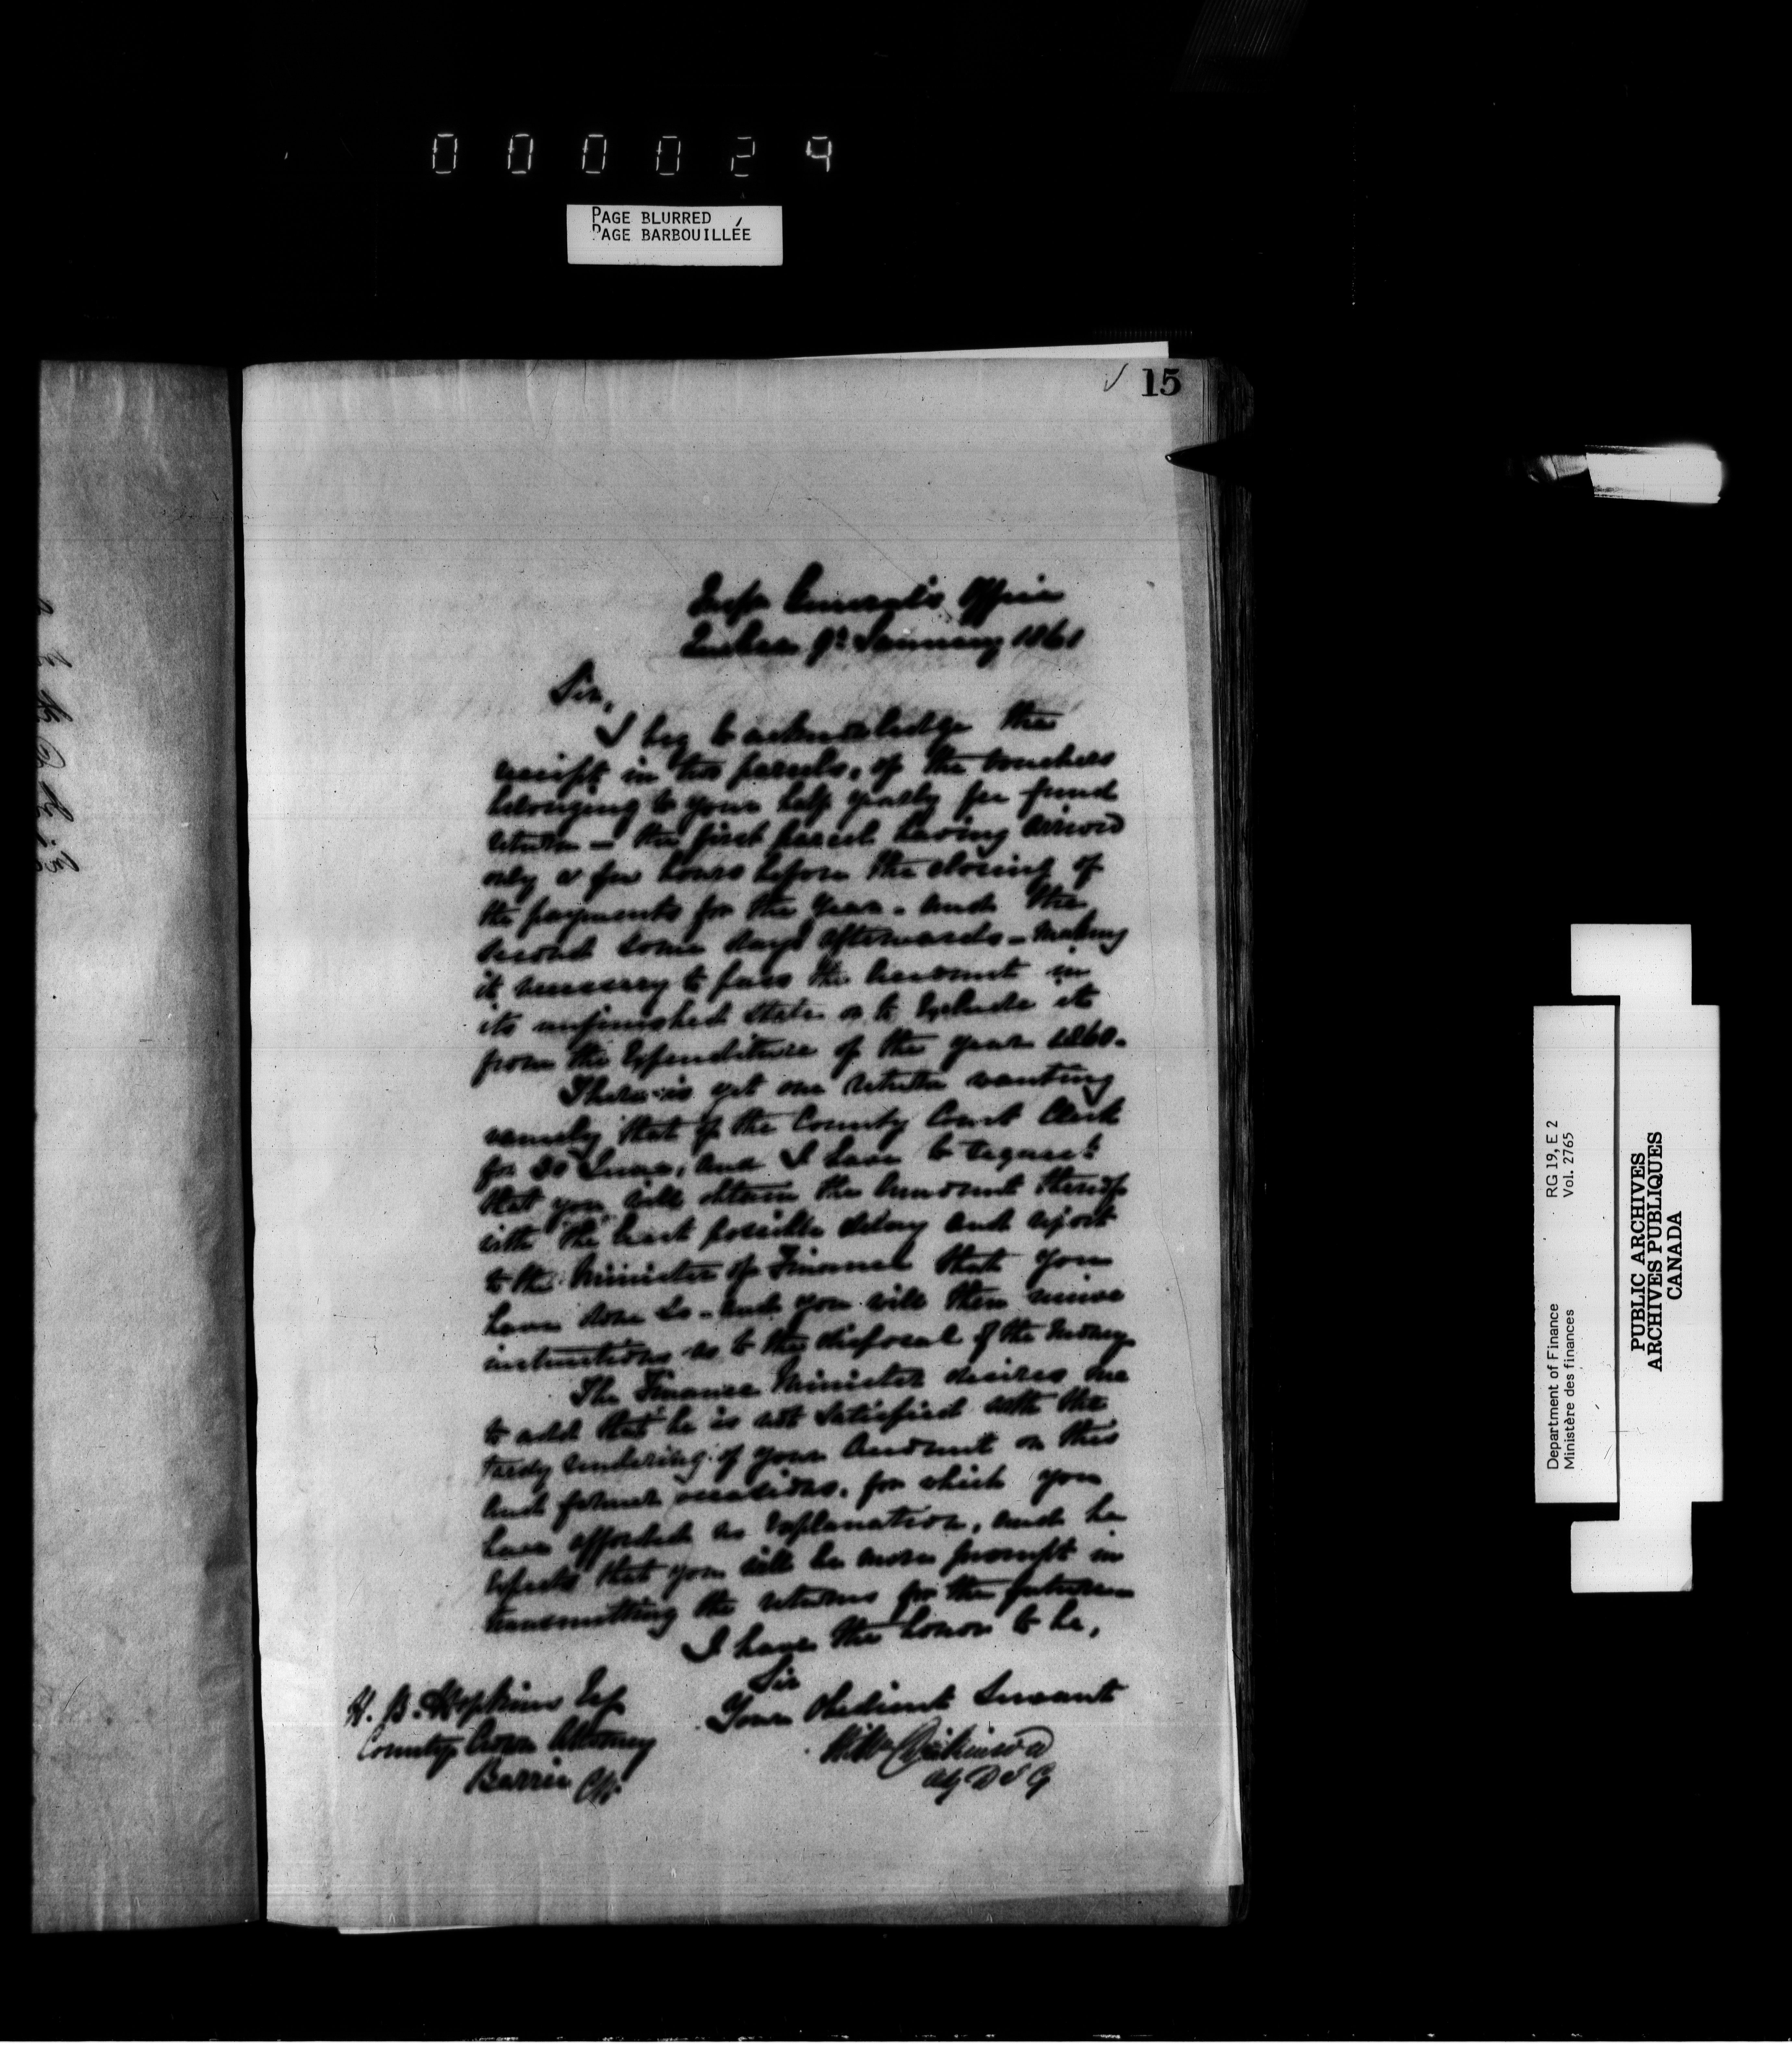 000024
PAGE BLURRED
PAGE BARBOUILLÉE
15
Insp General's Office
Quebec 9th January 1861
Sir,
I beg to acknowledge the
receipt in two parcels, of the vouchers
belonging to your half yearly fee fund
return - the first parcel having arrived
only a few hours before the closing of
the payments for the year - and the
second some days afterwards - making
it necessary to pass the Account in
its unfinished state or to Exclude it
from the Expenditure of the year 1860.
There is yet one return wanting
namely that of the County Court Clerk
for 30 June, and I have to request
that you will obtain the amount thereof
with the least possible delay and report
to the Minister of Finance that you
have done so - and you will then receive
instructions as to the disposal of the money
The Finance Minister desires me
to add that he is not satisfied with the
tardy rendering of your Account on this
and former occasions, for which you
have afforded no Explanation, and he
Expects that you will be more prompt in
transmitting the returns for the future
I have the honor to be,
Sir
Your Obedient Servant
Wm Dickinson
Actg D I G
H. B. Hopkins Esq
County Crown Attorney
Barrie CW.
Department of Finance RG 19, E 2
Ministère des finances Vol. 2765
PUBLIC ARCHIVES
ARCHIVES PUBLIQUES
CANADA